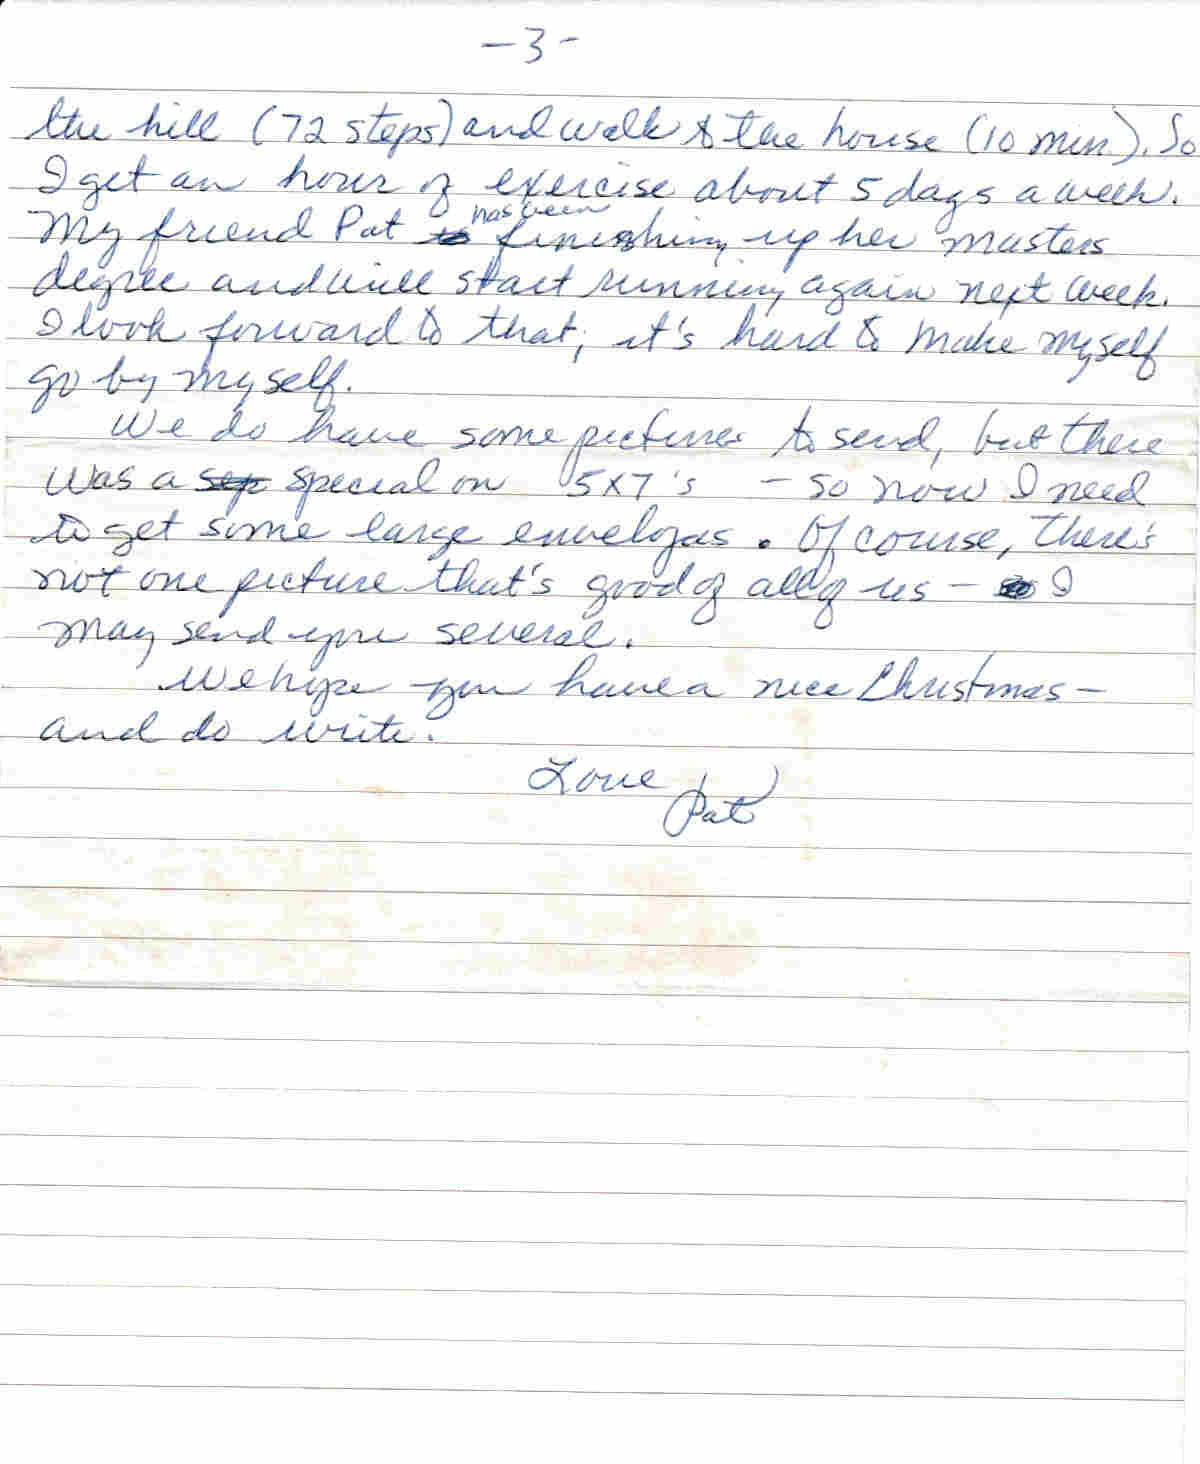 -3-
the hill (72 steps) and walk to the house (10 min). So
I get an hour of exercise about 5 days a week.
My friend Pat has been finishing up her masters
degree and will start running again next week.
I look forward to that; it's hard to make myself
go by myself.
We do have some pictures to send, but there
was a sep special on 5x7's - so now I need
to get some large envelopes. Of course, there's
not one picture that's good of all of us - I
may send you several.
We hope you have a nice Christmas -
and do write.
Love
Pat